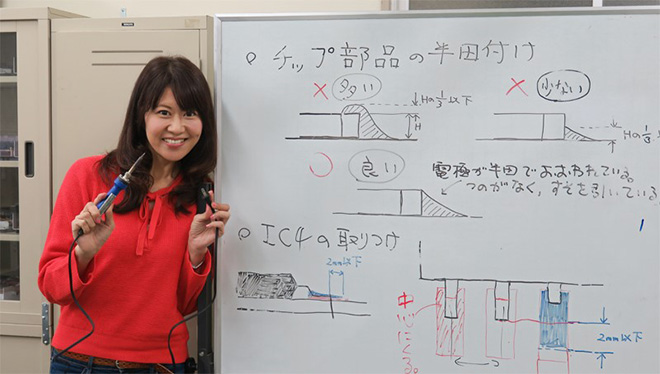 チップ部品の半田付け
× 多い
Hの1/3以下
H
× 少ない
Hの1/3
良い
電極が半田でおおわれている。
つのがなく、すそを引いている
IC4の取りつけ
2mm以下
中心にくる。
2mm以下